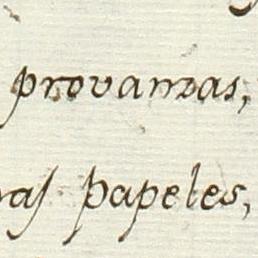 provanzas,
papeles,